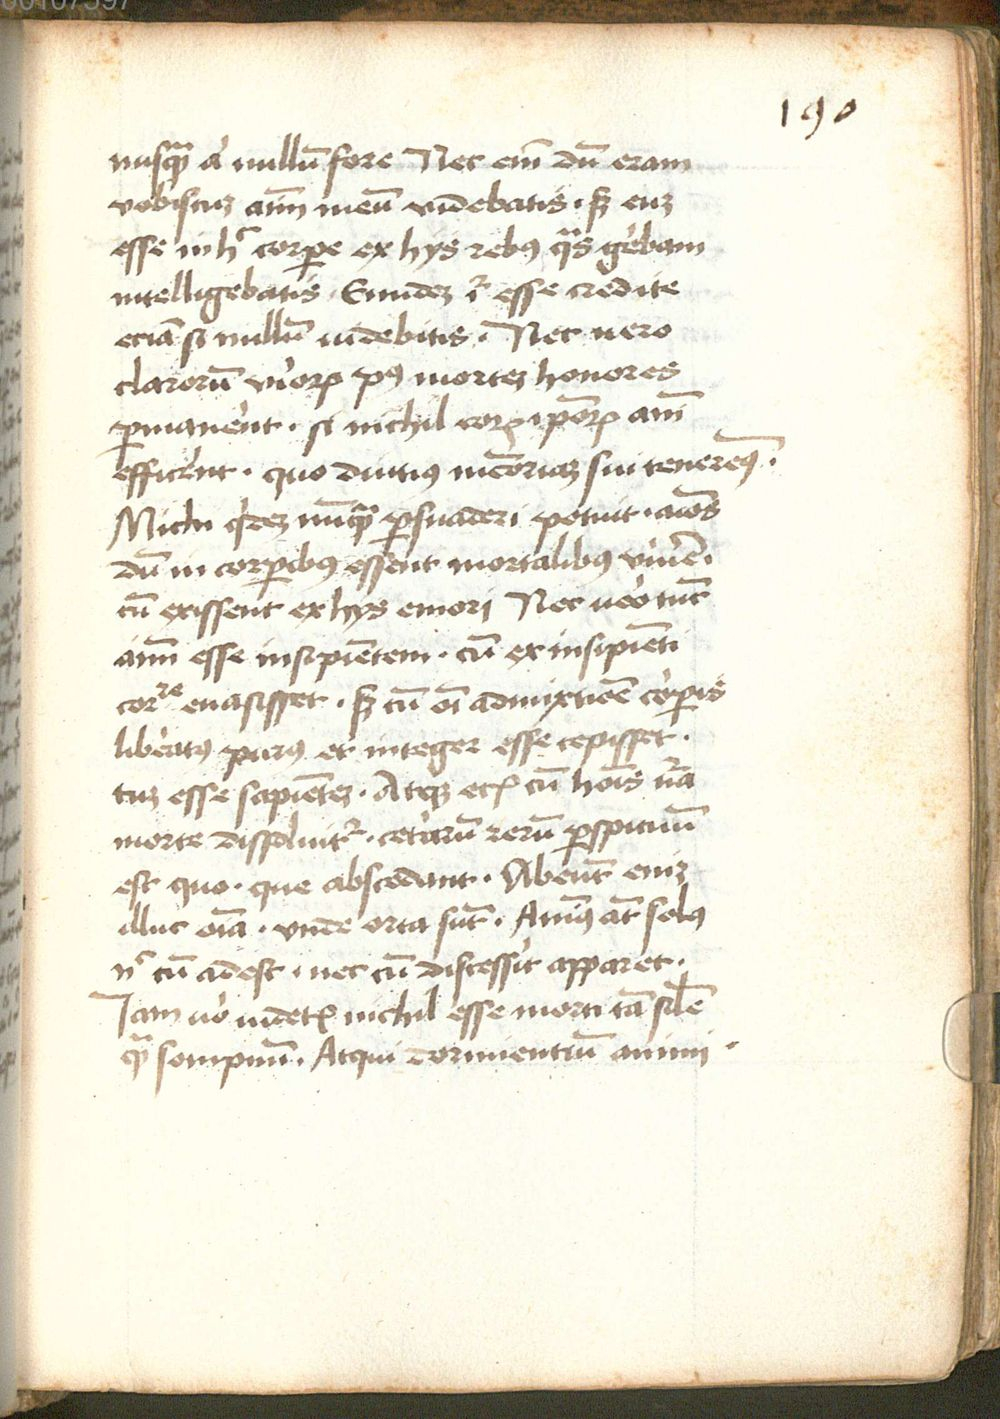 00107397
190
nusq̃ȝ a͛ nullū fore Nec em̄ dū eram
vobiscuȝ aīm meū videbatis · sȝ euȝ
esse in hͨ corꝑe ex hys rebꝰ qͣs ge͛bam
intelligebatis · Eundeȝ ĩ esse credite
eciā si nullū uidebitis · Nec uero
clarorū vi͛oꝝ pꝰ morteȝ honores
ꝑmane͛nt · si nichil eoꝝ ip̄oꝝ aīm
effice͛nt · quo diutiꝰ mēoriaȝ sui teneremꝰ ·
Michi qͥdeȝ nūq̃ȝ ꝑsuaderi potuit · aīos
dū in corꝑibꝰ essent mortalibꝰ viue͛e ·
cū exissent ex hys emori Nec ue͛o tūc
aīm esse insipiēte̅m · cū ex insipiēti
corʳᵉ euasisset · sȝ cū oī admixtiōe cor͛ꝑis
libe͛atꝰ purus et integer esse cepisset ·
tuȝ esse sapiēteȝ · Atqȝ etꝫ cū hoīs nr̄a
morte dissoluitͬ · cete͛arū rerū ꝑspicuū
est quo · que abscedant · Abeūt eniȝ
illuc oīa · vnde orta sūt · Aīmꝰ at̄ solus
nͨ cū adest · nec cū discessi͛t apparet ·
Iam ue͛o uidetꝫ nichil esse morti tā sil̄e
q̃ȝ sompnū · Atqui dormientiū animi ·